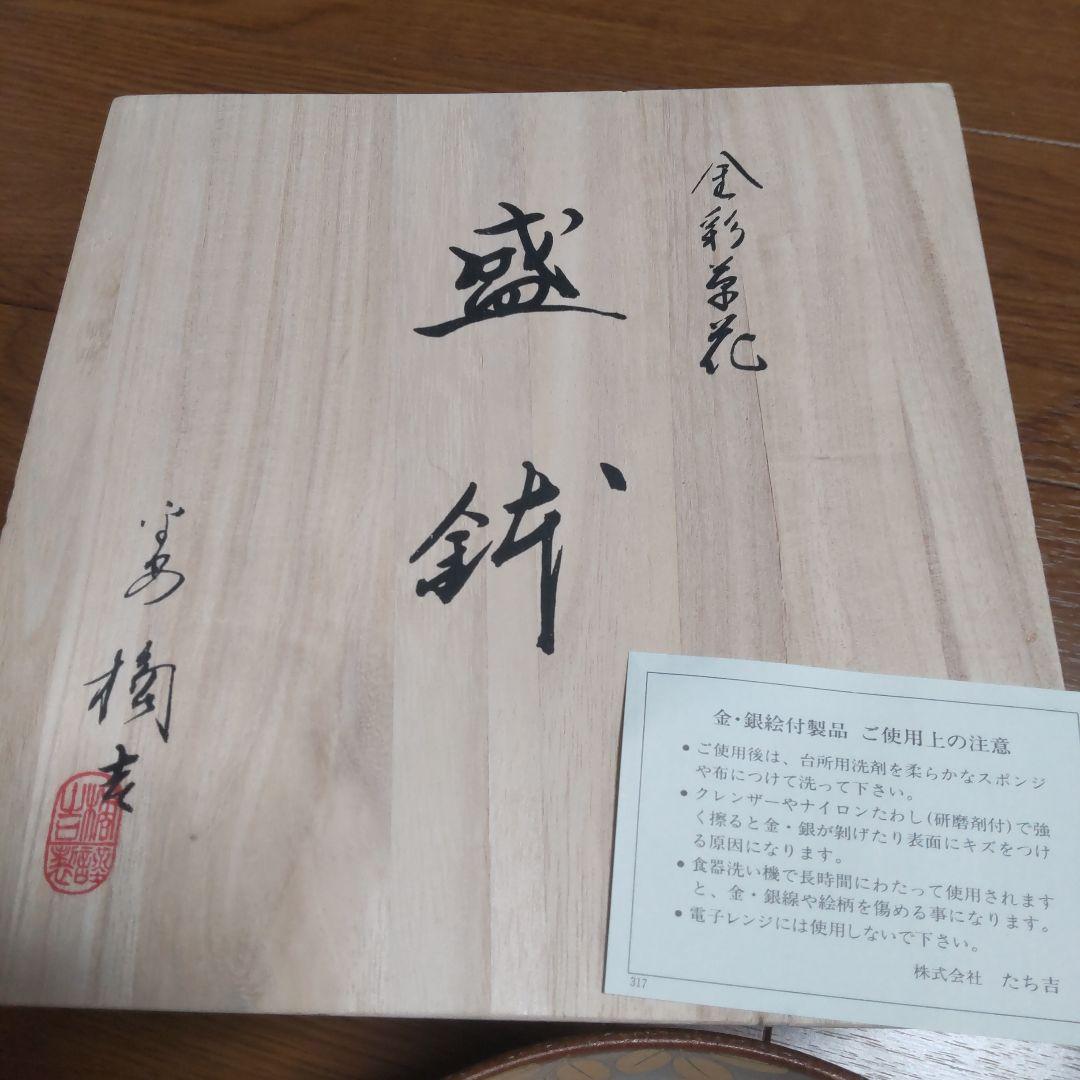 金彩草花
盛鉢
平安
橘吉
金・銀絵付製品 ご使用上の注意
●ご使用後は、台所用洗剤を柔らかなスポンジ
や布につけて洗って下さい。
●クレンザーやナイロンたわし(研磨剤付)で強
く擦ると金・銀が剝げたり表面にキズをつけ
る原因になります。
●食器洗い機で長時間にわたって使用されます
と、金・銀線や絵柄を傷める事になります。
●電子レンジには使用しないで下さい。
株式会社 たち吉
317